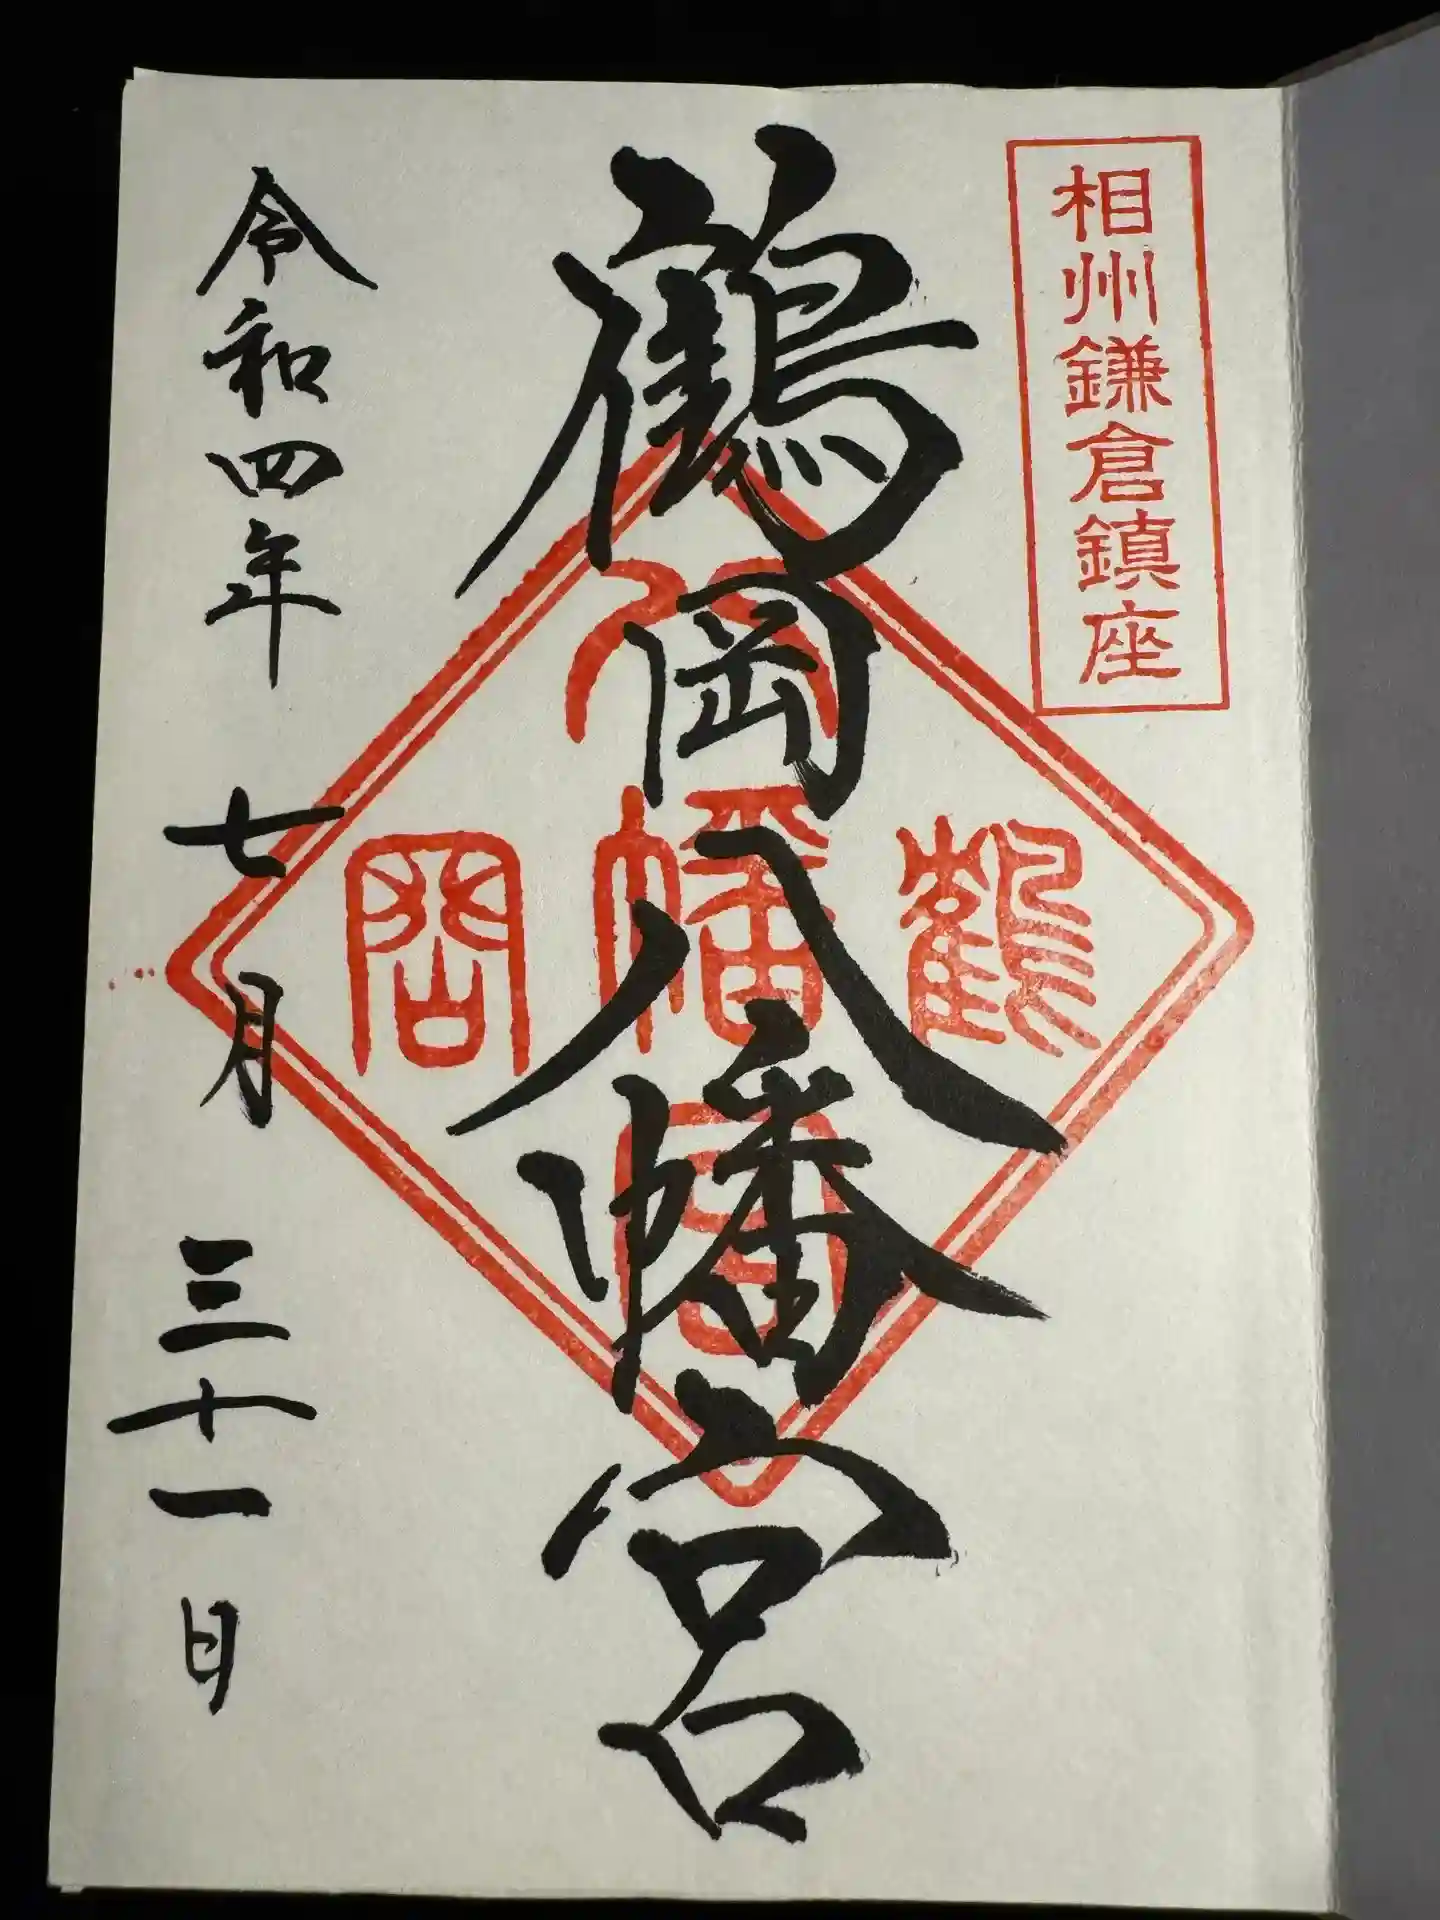 相州鎌倉鎮座
鶴岡八幡宮
鶴
八幡宮
岡
令和四年 七月 三十一日